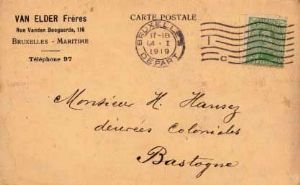 VAN ELDER Frères
CARTE POSTALE
Rue Vanden Boogaerde, 116
BRUXELLES - MARITIME
Téléphone 97
BRUXELLES
17-18
14-I
1919
DEPART
Monsieur H. Hansez
denrées Coloniales
Bastogne